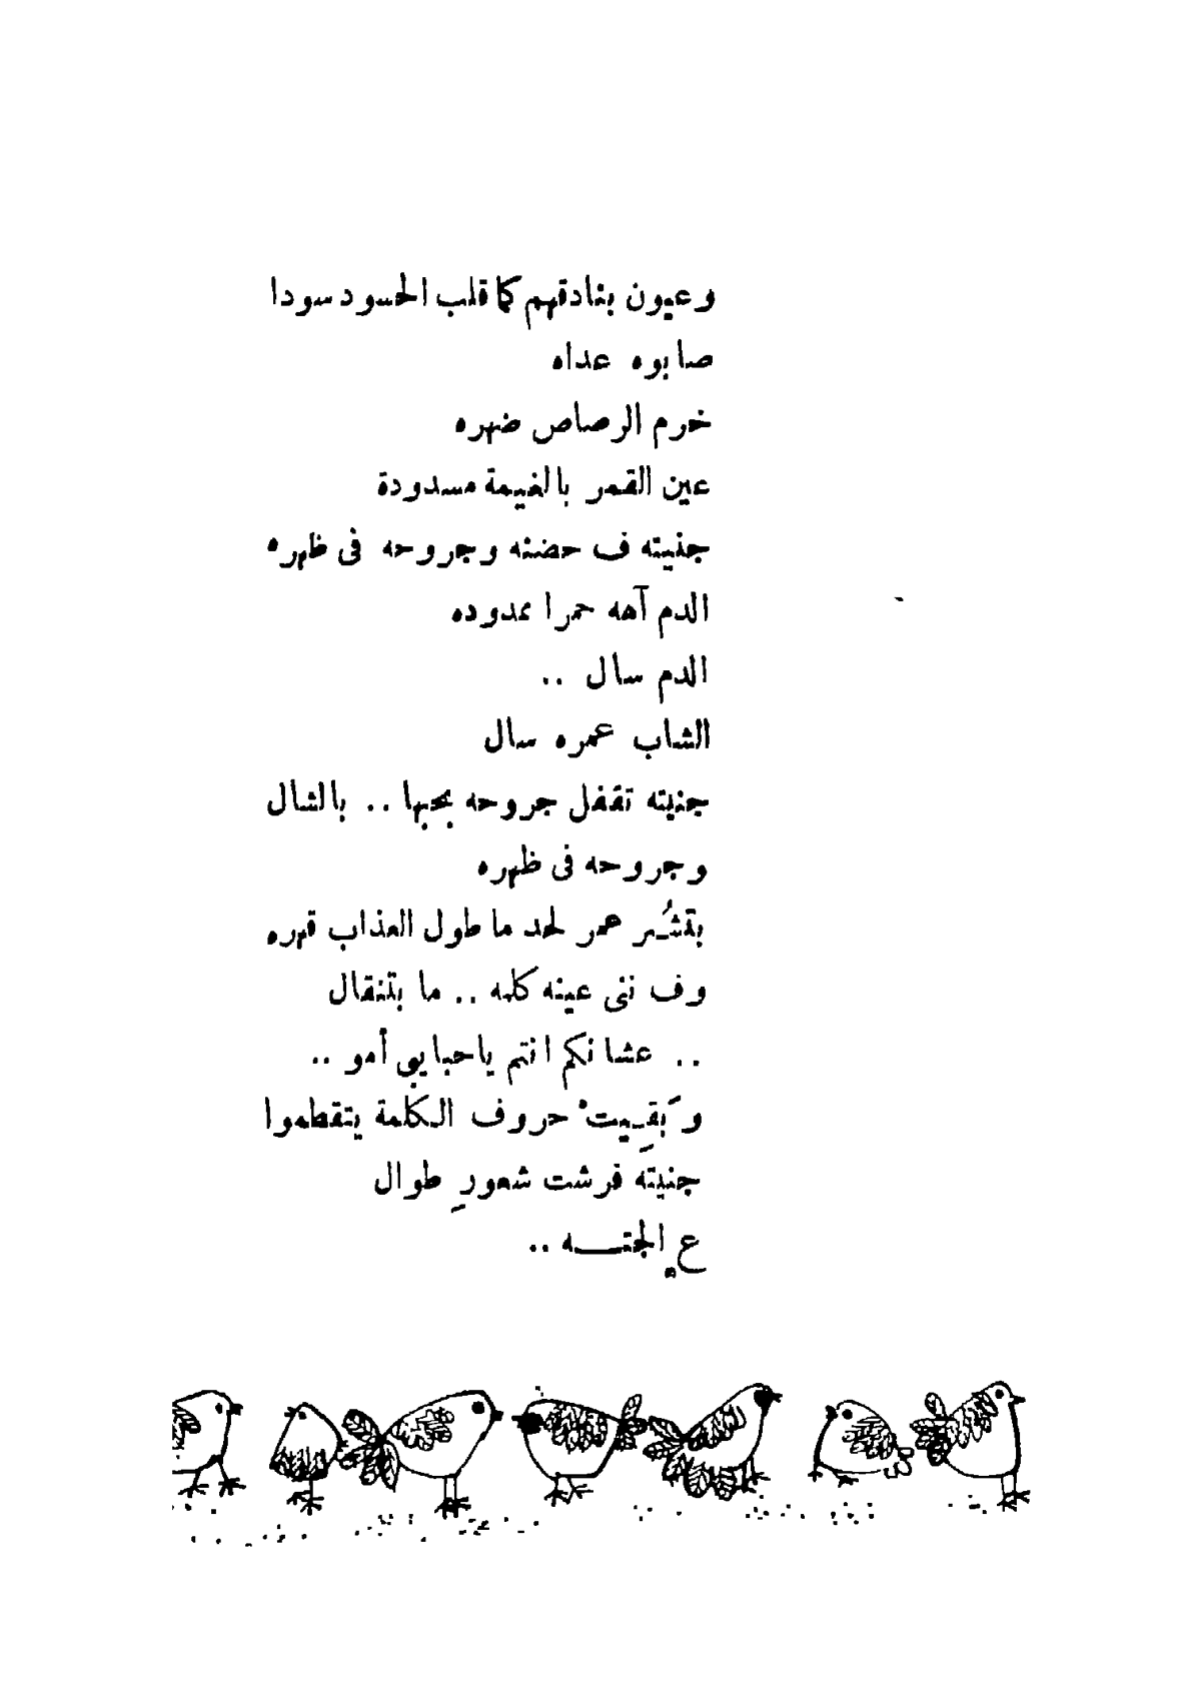 وعيون بنادقهم كما قلب الحسود سودا
صابوه عداه
خرم الرصاص ضهره
عين القمر بالغيمة مسدودة
جنيته ف حضنه وجروحه فى ظهره
الدم آهه حمرا ممدوده
الدم سال ..
الشاب عمره سال
جنيته تقفل جروحه بحبها .. بالشال
وجروحه فى ظهره
بتشُـر عمر لحد ما طول العذاب قهره
وف ننى عينه كلمه .. ما بتنقال
.. عشانكم انتم ياحبايبى أمو ..
وَبقِـيتْ حروف الكلمة يتقطموا
جنيته فرشت شعورِ طوال
ع الجتـــه ..